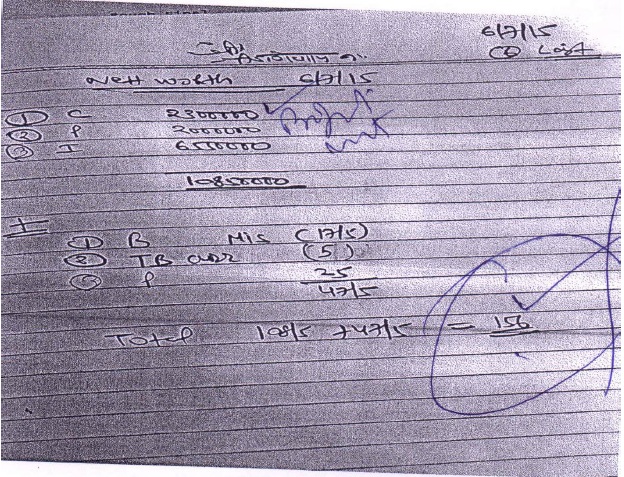 6/7/15
श्री
Last
Nett worth 6/7/15
① C 2300000
② P 2000000
③ I 6550000
10850000
① B MIS (17/5)
② TB (5)
③ P 25
47/5
Total 108/5 + 47/5 = 156